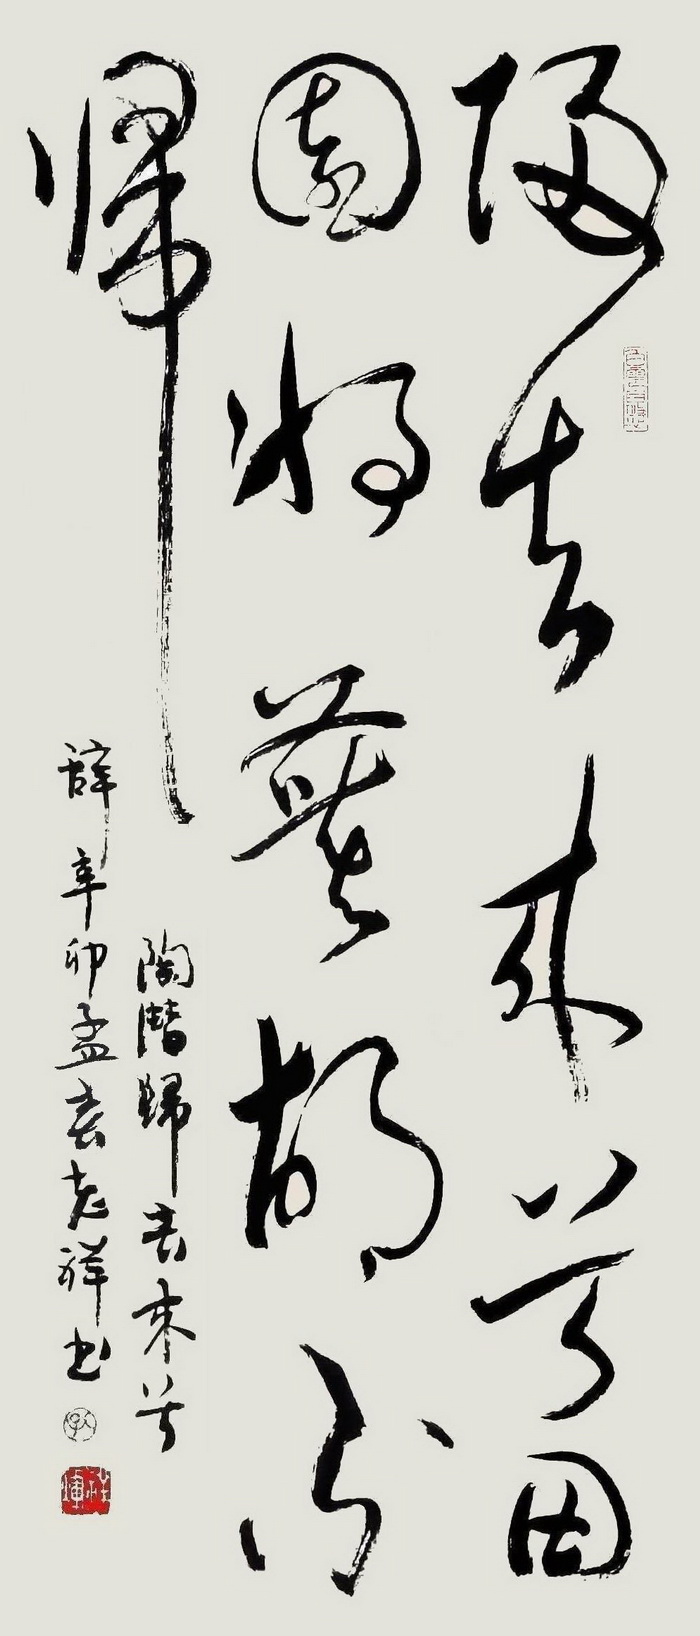 歸去來兮田
園將蕪胡不
歸
陶潛歸去來兮
辭辛卯孟春老祥书